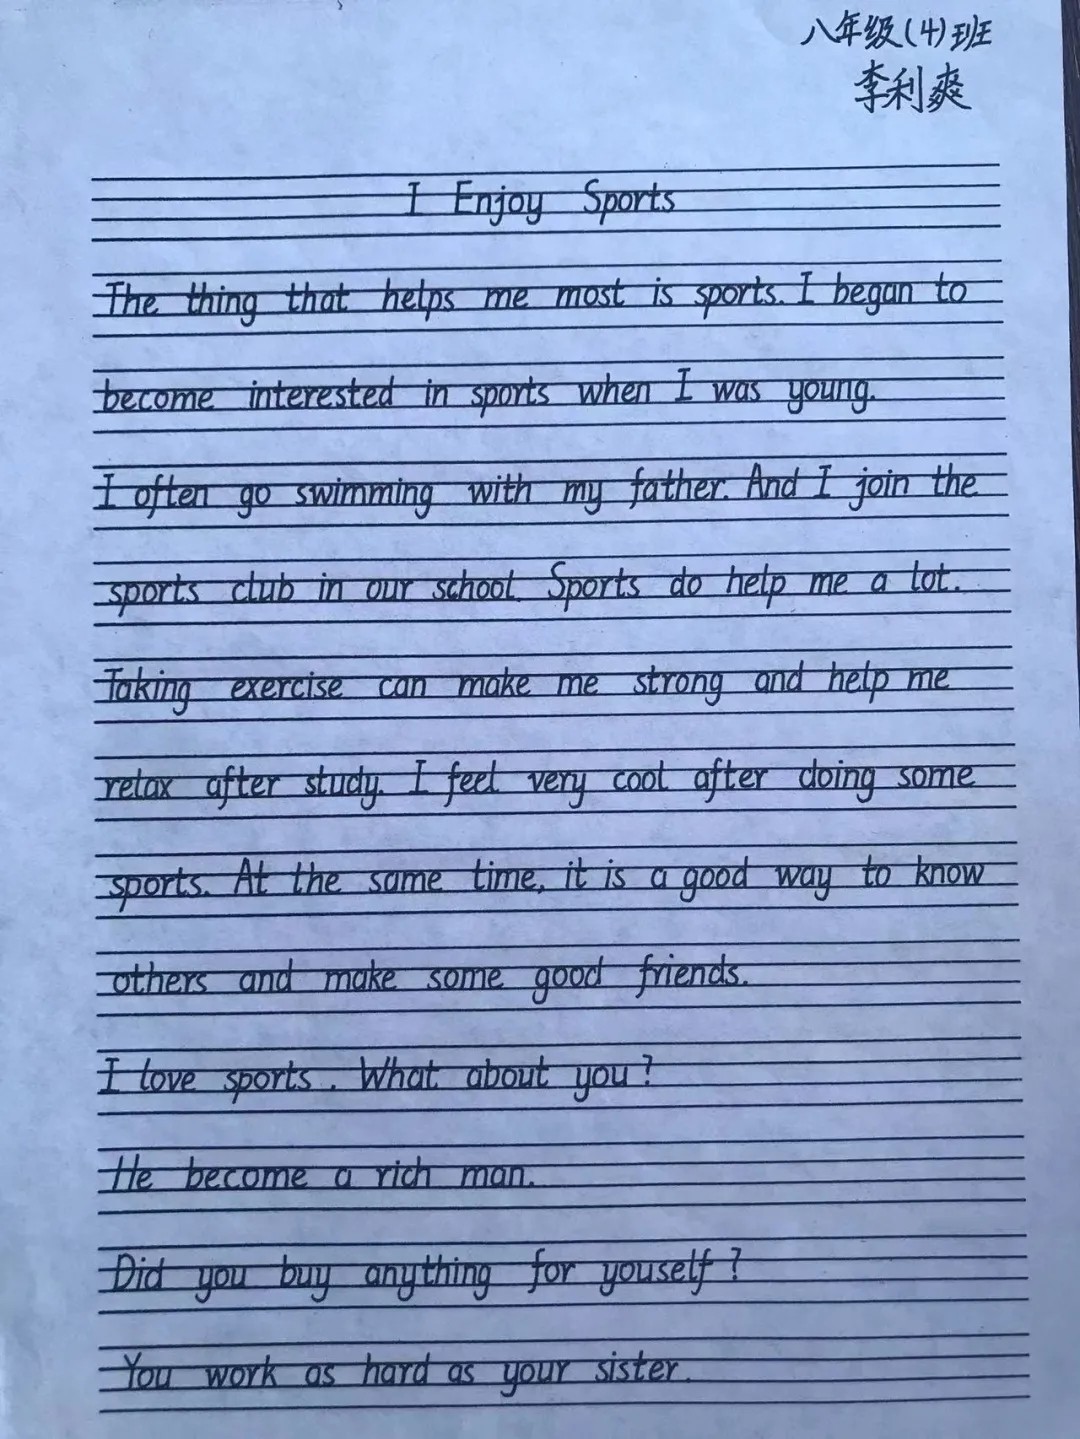 八年级(4)班
李利爽
I Enjoy Sports
The thing that helps me most is sports. I began to
become interested in sports when I was young.
I often go swimming with my father. And I join the
sports club in our school. Sports do help me a lot.
Taking exercise can make me strong and help me
relax after study. I feel very cool after doing some
sports. At the same time, it is a good way to know
others and make some good friends.
I love sports. What about you?
He become a rich man.
Did you buy anything for youself?
You work as hard as your sister.